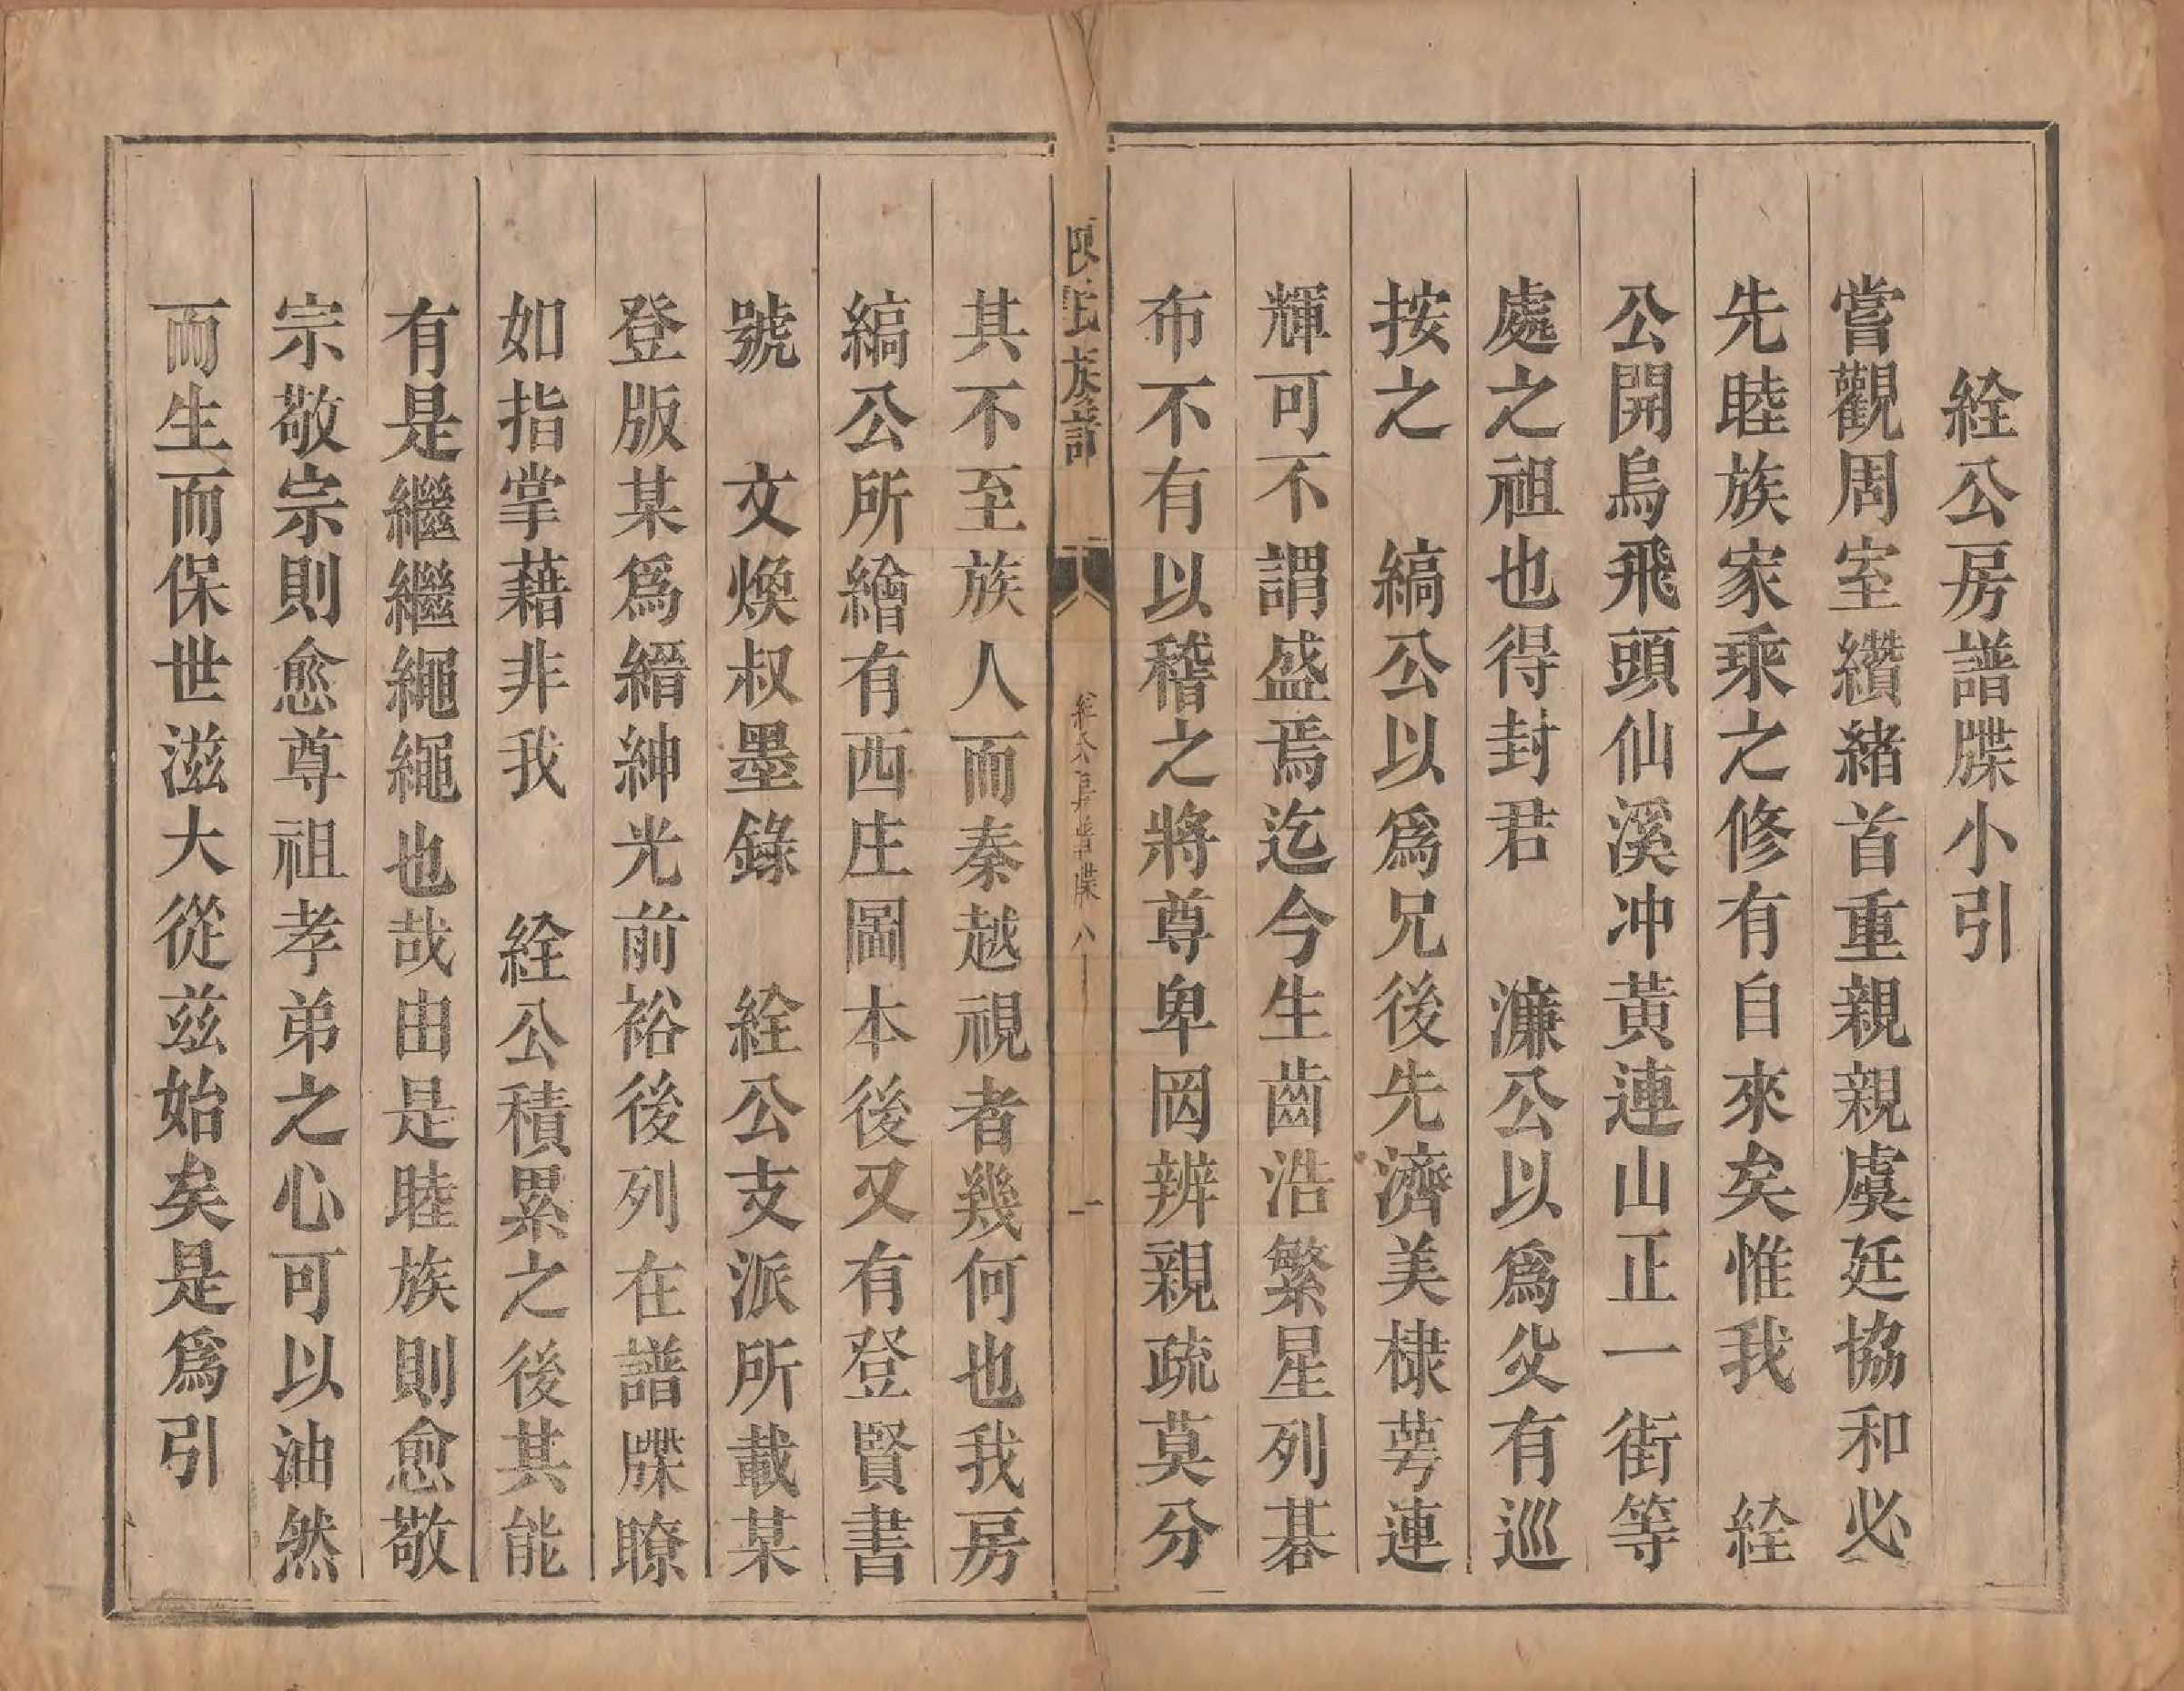 絟公房譜牒小引
嘗觀周室纘緒首重親親虞廷協和必
先睦族家乘之修有自來矣惟我　絟
公開烏飛頭仙溪冲黃連山正一街等
處之祖也得封君　濂公以爲父有巡
按之　縞公以爲兄後先濟美棣萼連
輝可不謂盛焉迄今生齒浩繁星列碁
布不有以稽之將尊卑罔辨親疏莫分
陳氏族譜　絟公房譜牒　一
其不至族人而秦越視者幾何也我房
縞公所繪有西庄圖本後又有登賢書
號　文煥叔墨錄　絟公支派所載某
登版某爲縉紳光前裕後列在譜牒瞭
如指掌藉非我　絟公積累之後其能
有是繼繼繩繩也哉由是睦族則愈敬
宗敬宗則愈尊祖孝弟之心可以油然
而生而保世滋大從兹始矣是爲引